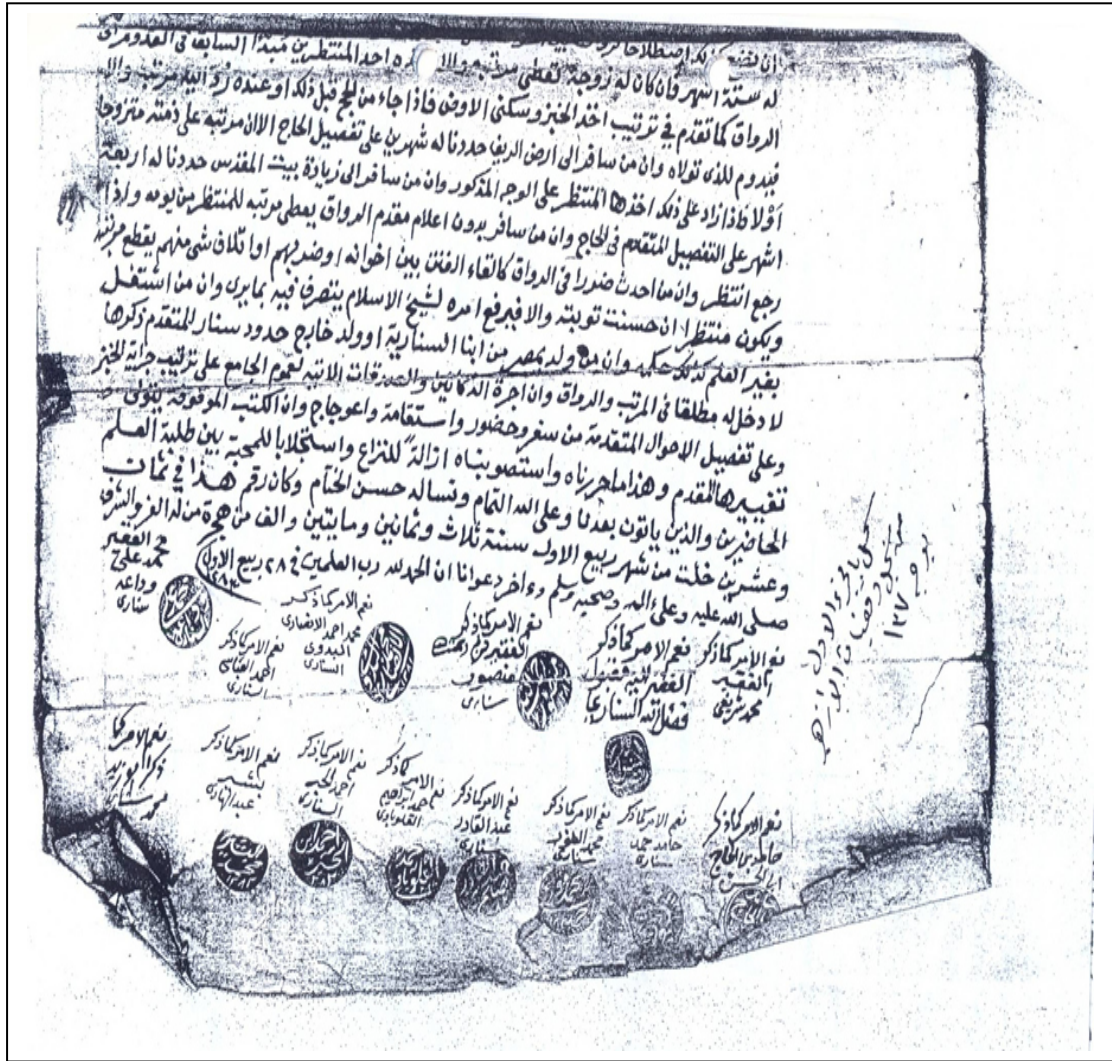 له ستة اشهر وان كان له زوجة تعطى مرتبه والا اخذه احد المنتظرين مبدا السابق في القدوم الى
الرواق كما تقدم في ترتيب اخذ الخبز وسكنى الاوض فاذا جاء من الحج قبل ذلك او عنده رد اليه مرتبه والا
فيدوم للذى تولاه وان من سافر الى ارض الريف حددنا له شهرين على تفصيل الحاج الا ان مرتبه على ذمته متزوجا
اولا فاذا زاد على ذلك اخذها المنتظر على الوجه المذكور وان من سافر الى زيارة بيت المقدس حددنا له اربعة
اشهر على التفصيل المتقدم في الحاج وان من سافر بدون اعلام مقدم الرواق يعطى مرتبه للمنتظر من يومه واذا
رجع انتظر وان من احدث ضررا في الرواق كالقاء الفتن بين اخوانه او ضربهم او اتلاف شى منهم يقطع مرتبه
ويكون منتظرا ان حسنت توبته والا فيرفع امره لشيخ الاسلام يتصرف فيه بما يرى وان من اشتغل
بغير العلم كذلك حكمه وان من ولد بمصر من ابنا السنارية او ولد خارج حدود سنار المتقدم ذكرها
لا دخل له مطلقا في المرتب والرواق وان اجرة الدكاكين والصدقات الاتيه لعموم الجامع على ترتيب جراية الخبز
وعلى تفصيل الاحوال المتقدمة من سفر وحضور واستقامة واعوجاج وان الكتب الموقوفة يتولى
تغييرها المقدم وهذا ما حررناه واستصوبناه ازالة للنزاع واستجلابا للمحبة بين طلبة العلم
الحاضرين والذين ياتون بعدنا وعلى الله التمام ونساله حسن الختام وكان رقم هذا في ثمان
وعشرين خلت من شهر ربيع الاول سنة ثلاث وثمانين ومايتين والف من هجرة من له العز والشرف
صلى الله عليه وعلى اله وصحبه وسلم واخر دعوانا ان الحمد لله رب العلمين في ٢٨ ربيع الاول ١٢٨٣
الفقير محمد علي وداعه سنارى
نعم الامر كما ذكر محمد احمد الانصارى البدوى السنارى
نعم الامر كما ذكر احمد السنارى
نعم الامر كما ذكر الفقير منصور سنارى
نعم الامر كما ذكر الفقير فضل الله السنارى
نعم الامر كما ذكر الفقير محمد شريف
نعم الامر كما ذكر محمد سنارى
نعم الامر كما ذكر بشير عبد الهادى
نعم الامر كما ذكر احمد السنارى
نعم الامر كما ذكر احمد ابراهيم
نعم الامر كما ذكر عبد القادر سنارى
نعم الامر كما ذكر محمد سنارى
نعم الامر كما ذكر حامد حمد سنارى
نعم الامر كما ذكر حامد بن الحاج ابو الحسن
سجل بالجزء الاول
سجل
١٢٧